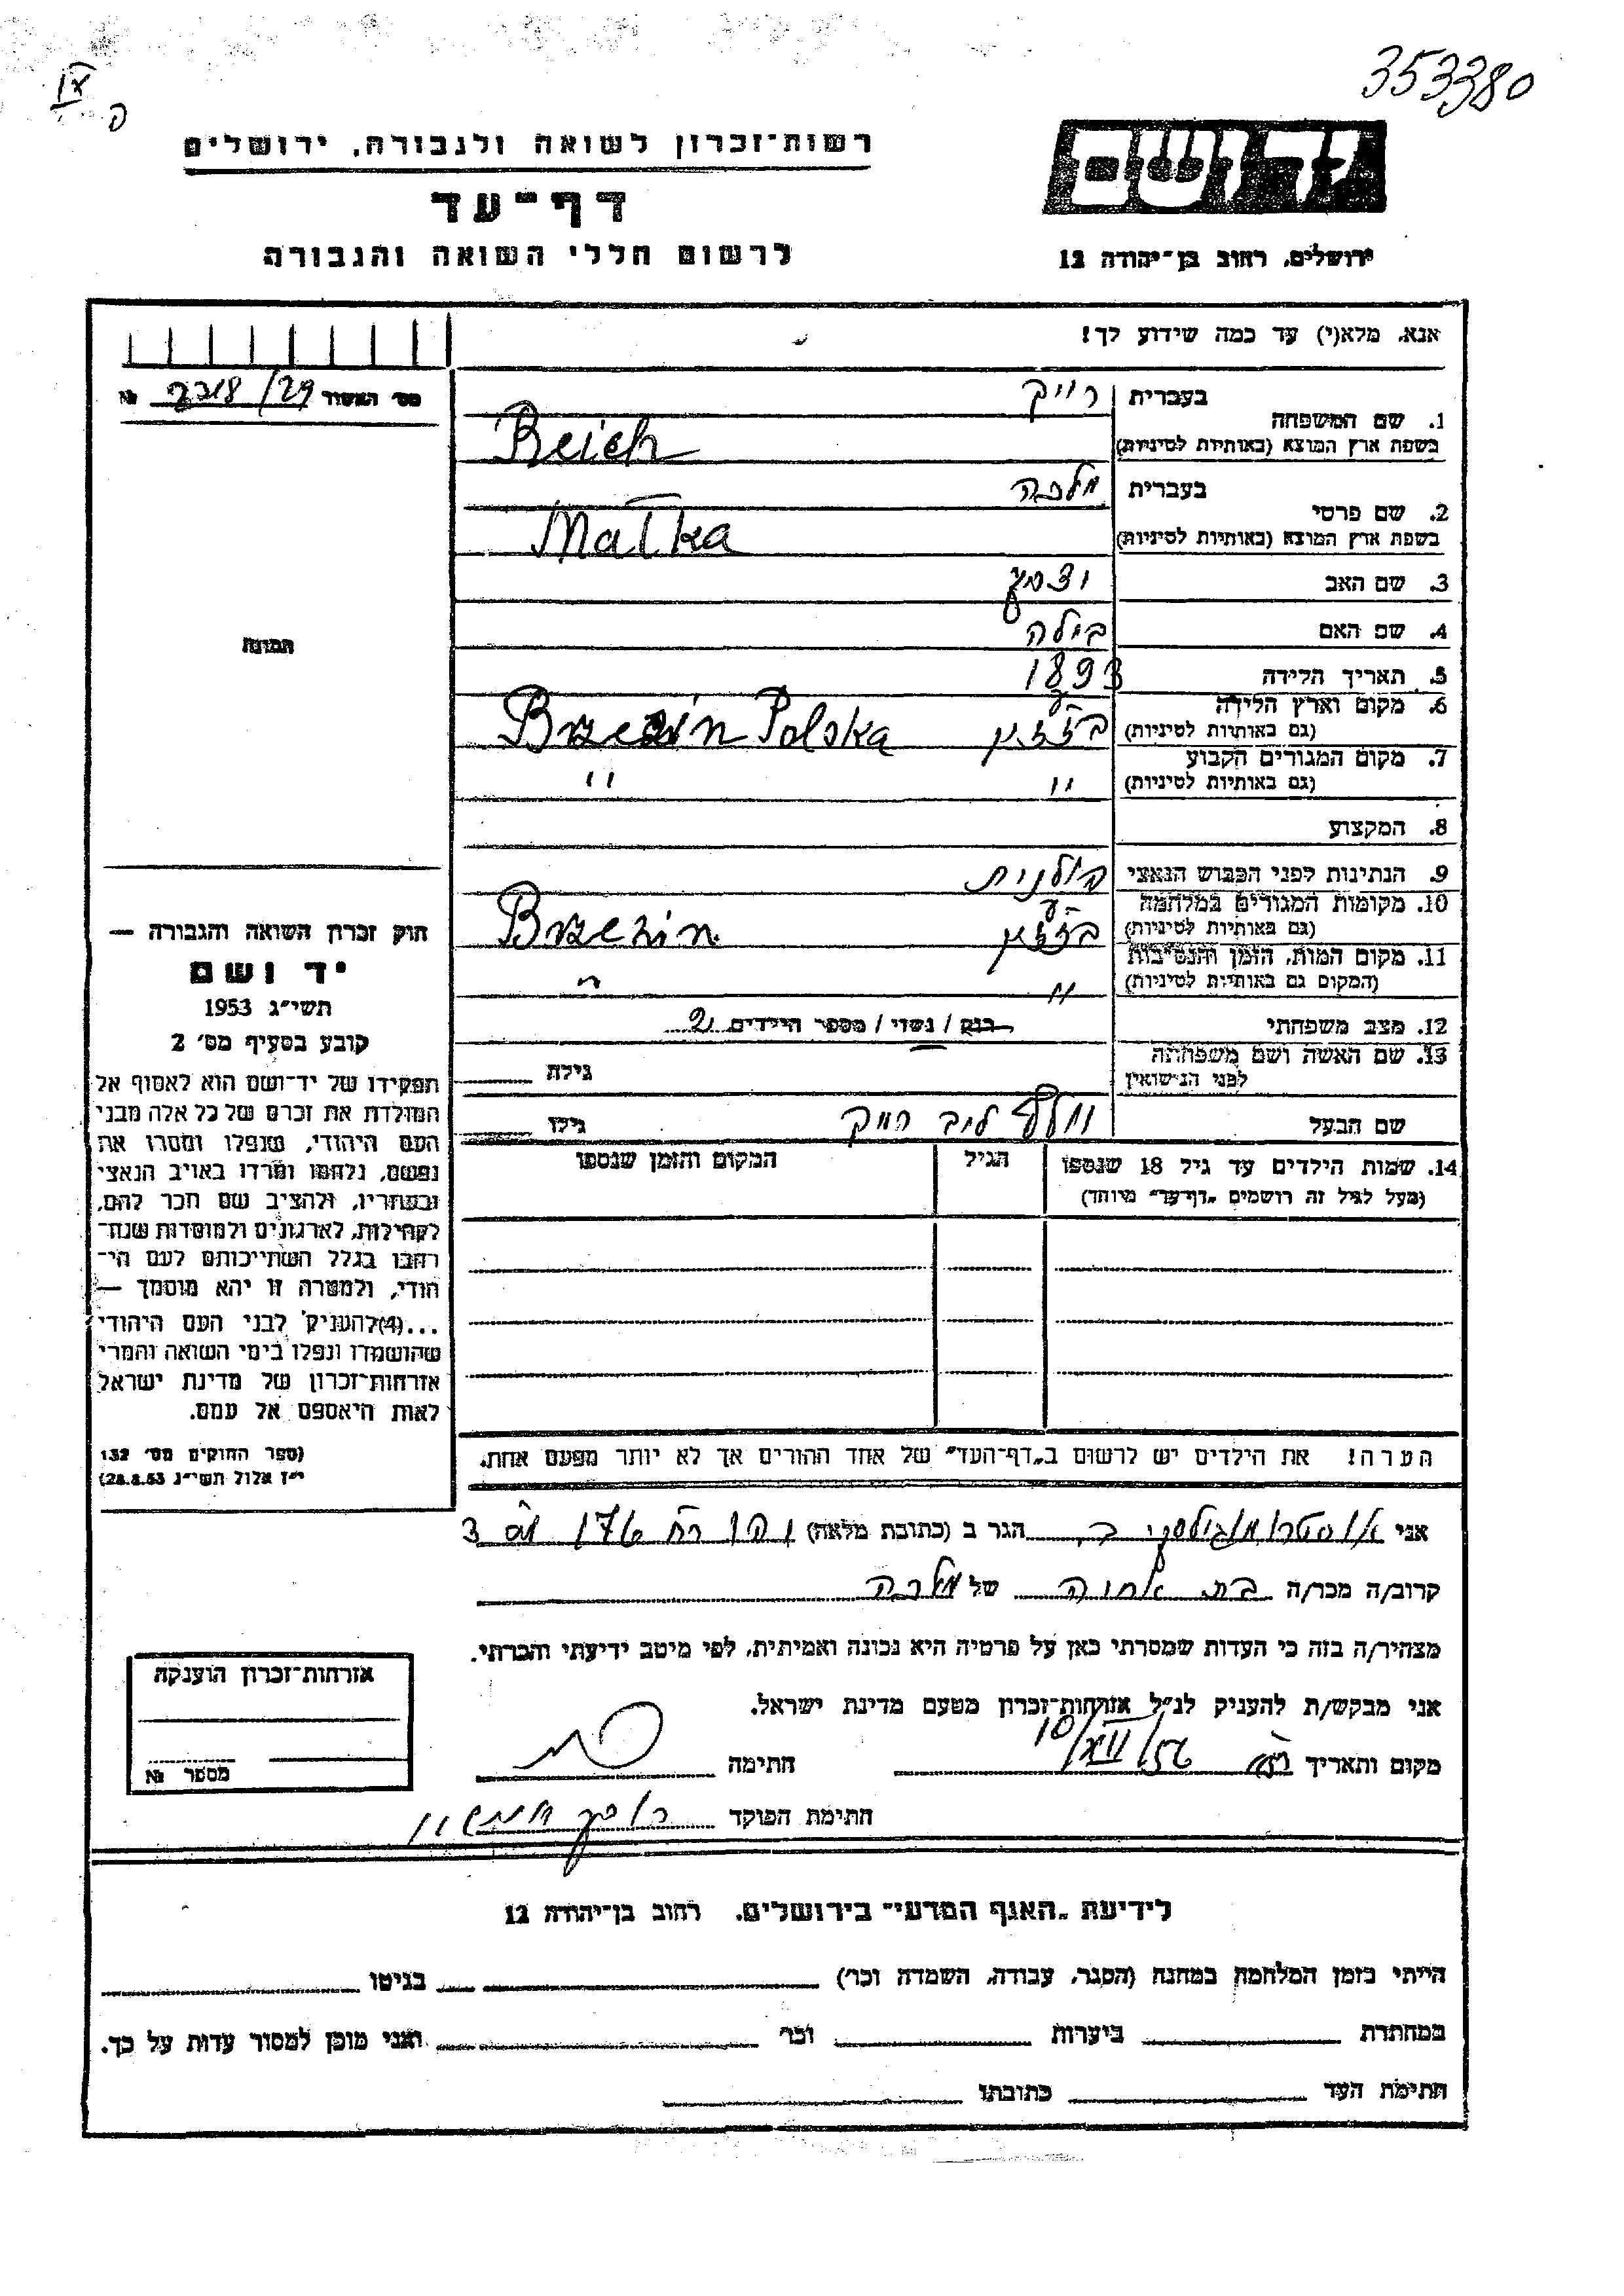 353380
רשות-זכרון לשואה ולגבורה, ירושלים
דף-עד
לרשום חללי השואה והגבורה
ידושם
ירושלים, רחוב בן-יהודה 12
אנא, מלא(י) עד כמה שידוע לך!
מס' האשור 2318/29 №
1. שם המשפחה בעברית רייך
בשפת ארץ המוצא (באותיות לטיניות) Reich
2. שם פרטי בעברית מלכה
בשפת ארץ המוצא (באותיות לטיניות) Malka
3. שם האב
4. שם האם בילה
5. תאריך הלידה 1893
6. מקום וארץ הלידה
(גם באותיות לטיניות) Brzezin Polska
7. מקום המגורים הקבוע
(גם באותיות לטיניות) " "
8. המקצוע
9. הנתינות לפני הכבוש הנאצי פולנית
10. מקומות המגורים במלחמה
(גם באותיות לטיניות) Brzezin
11. מקום המות, הזמן והנסיבות
(המקום גם באותיות לטיניות) " "
12. מצב משפחתי רווק / נשוי / מספר הילדים 2
13. שם האשה ושם משפחתה
לפני הנישואין גילה
שם הבעל וולף ליב רייך גילו
14. שמות הילדים עד גיל 18 שנספו הגיל המקום והזמן שנספו
(מעל לגיל זה רושמים "דף-עד" מיוחד)
הערה! את הילדים יש לרשום ב"דף-העד" של אחד ההורים אך לא יותר מפעם אחת.
תמונה
חוק זכרון השואה והגבורה —
יד ושם
תשי"ג 1953
קובע בסעיף מס' 2
תפקידו של יד-ושם הוא לאסוף אל
המולדת את זכרם של כל אלה מבני
העם היהודי, שנפלו ומסרו את
נפשם, נלחמו ומרדו באויב הנאצי
ובעוזריו, ולהציב שם וזכר להם,
לקהילות, לארגונים ולמוסדות שנח-
רבו בגלל השתייכותם לעם הי-
הודי, ולמטרה זו יהא מוסמך —
...(4)להעניק לבני העם היהודי
שהושמדו ונפלו בימי השואה והמרי
אזרחות-זכרון של מדינת ישראל
לאות היאספם אל עמם.
(ספר החוקים מס' 132
י"ז אלול תשי"ג 28.8.53)
אני הגר ב (כתובת מלאה) 176
קרוב/ה מכר/ה בת אחות של מלכה
מצהיר/ה בזה כי העדות שמסרתי כאן על פרטיה היא נכונה ואמיתית, לפי מיטב ידיעתי והכרתי.
אני מבקש/ת להעניק לנ"ל אזרחות-זכרון מטעם מדינת ישראל.
מקום ותאריך 10/XII/56 חתימה
חתימת הפוקד
אזרחות-זכרון הוענקה
מספר №
לידיעת "האגף המדעי" בירושלים, רחוב בן-יהודה 12
הייתי בזמן המלחמה במחנה (הסגר, עבודה, השמדה וכו') בגיטו
במחתרת ביערות וכו' ואני מוכן למסור עדות על כך.
חתימת העד כתובתו